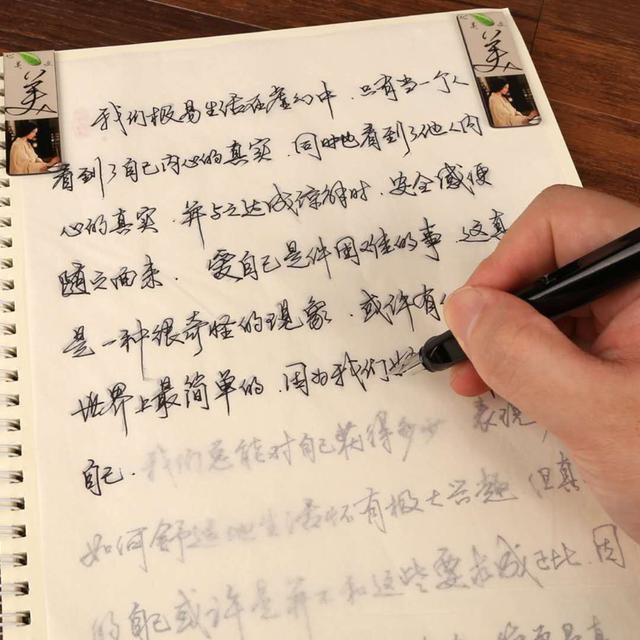 美
美
我们极易生活在虚幻中．只有当一个人
看到了自己内心的真实．同时也看到了他人内
心的真实．并与之达成谅解时．安全感便
随之而来．爱自己是件困难的事．这真
是一种很奇怪的现象．或许有
世界上最简单的．因为我们
自己．我们总能对自己获得多少 表现
如何舒适地生活怀有极大兴趣 但真
的自己或许是并不和这些要求成正比．因